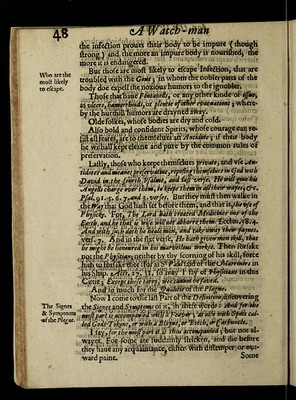 48
A Watch-man
the infection proues their body to be impure (though
strong) and the more an impure body is nourished, the
more it is endangered.
Who are the
most likely
to escape.
But those are most likely to escape Infection, that are
troubled with the Gout; in whom the nobler parts of the
body doe expell the noxious humors to the ignobler.
Those that haue Fontanels, or any other kinde of
as vlcers, hæmorrhoids, or plentie of other euacuations; where-
by the hurtfull humors are drayned away.
Olde folkes, whose bodies are dry and cold.
Also bold and confident Spirits, whose courage can re-
sist all feares, are to themselues an Antidote; if their body
be withall kept cleane and pure by the common rules of
preseruation.
Lastly, those who keepe themselues priuate, and vse An-
tidotes and meanes preseruatiue, reposing themselues in God with
Dauid in the fourth Psalme, and last verse. He will giue his
Angells charge ouer them, to keepe them in all their wayes, &c.
Psal. 91. 5. 6. 7. and 8. verses. But they must then walke in
the Way that God hath set before them, and that is, the way of
Physicke. For, The Lord hath created Medicines out of the
Earth, and he that is wise will not abhorre them. Ecclus. 38. 4.
And with such doth he heale men, and take away their paynes.
vers. 7. And in the sixt verse, He hath giuen men skill, that
he might be honoured in his maruellous workes. Then forsake
not the Physitian, neither by thy scorning of his skill, force
him to forsake thee: for as S. Paul said of the Marriners in
his ship. Acts, 27. 31. so may I say of Physitians in this
Case; Except these tarry, wee cannot be saued.
And so much for the Quidditie of the Plague.
The Signes
& Symptoms
of the Plague.
Now I come to the last Part of the Definition, discouering
the Signes and Symptoms of it, in these words: And for the
most part is accompanied with a Feauer; at also with Spots cal-
led Gods-Tokens, or with a Blayne, or Botch, or Carbuncle.
I say, for the most part it is thus accompanied; but not al-
wayes. For some are suddenly stricken, and die before
they haue any acquaintance, either with distemper, or out-
ward paine.
Some